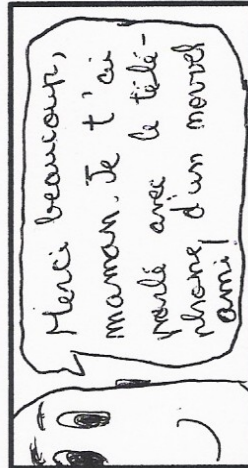 Merci beaucoup,
maman. Je t'ai
parlé avec le télé-
phone d'un nouvel
ami!